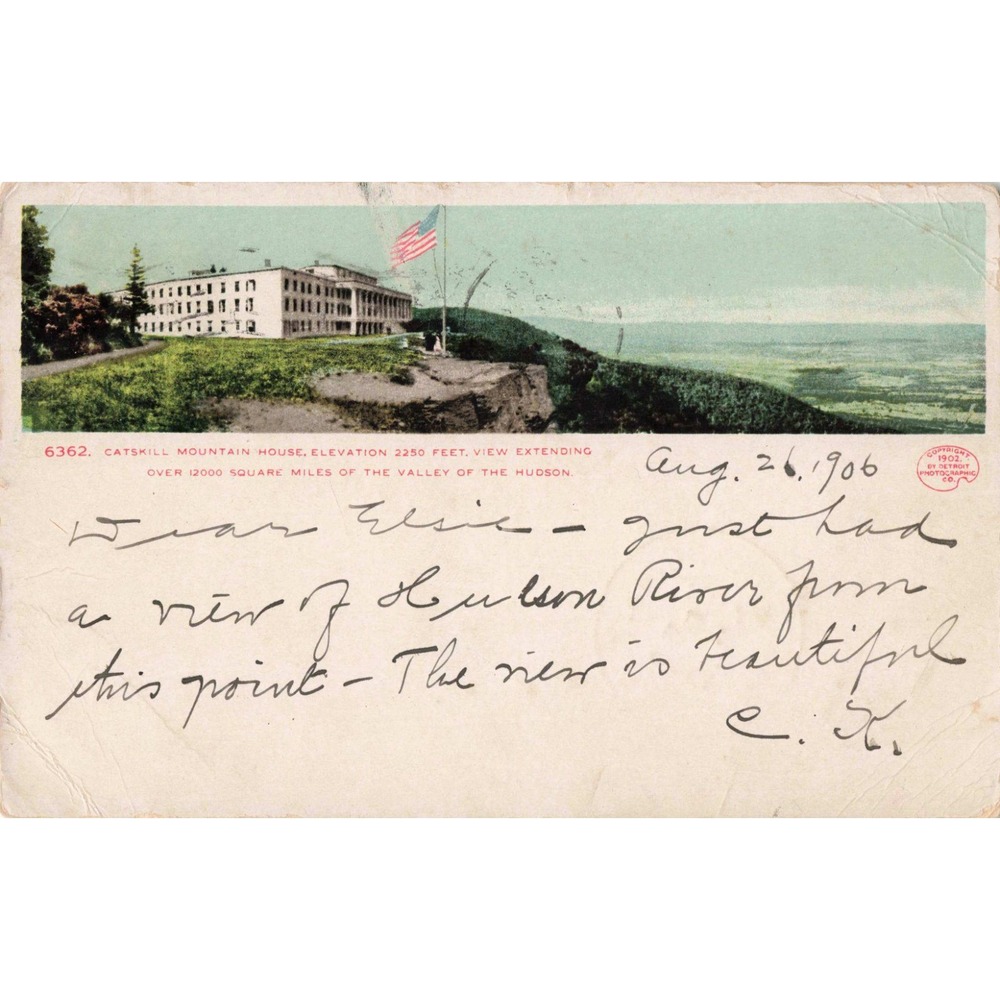 6362. CATSKILL MOUNTAIN HOUSE, ELEVATION 2250 FEET, VIEW EXTENDING
OVER 12000 SQUARE MILES OF THE VALLEY OF THE HUDSON.
COPYRIGHT,
1902,
BY DETROIT
PHOTOGRAPHIC
CO.
Aug. 26, 1906
Dear Elsie – Just had
a view of Hudson River from
this point – The view is beautiful
C. K.